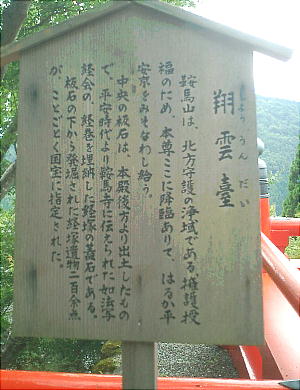 翔雲臺
しよううんだい
鞍馬山は、北方守護の浄域である。擁護授
福のため、本尊ここに降臨ありて、はるか平
安京をみそなわし給う。
中央の板石は、本殿後方より出土したもの
で、平安時代より鞍馬寺に伝えられた如法写
経会の、経巻を埋納した経塚の蓋石である。
板石の下から発掘された経塚遺物二百余点
が、ことごとく国宝に指定された。